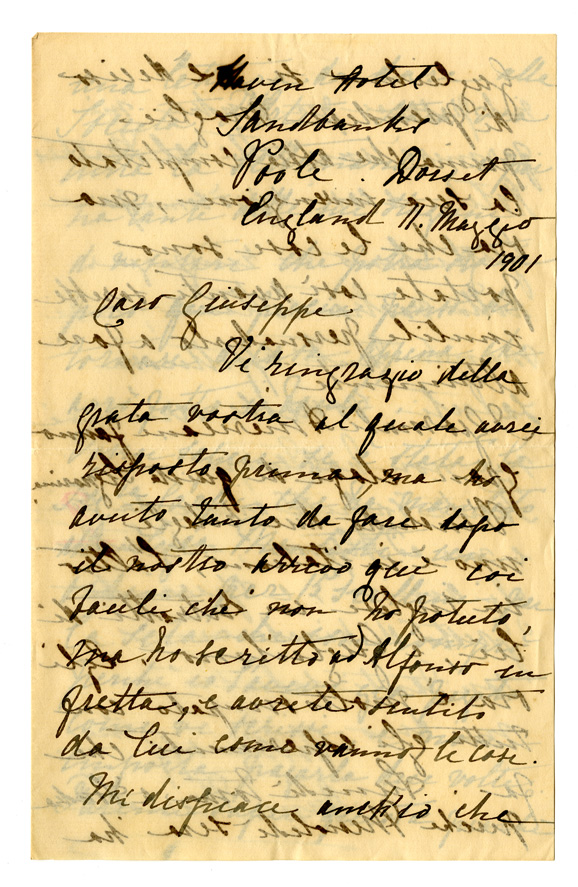 Haven Hotel
Sandbanks
Poole . Dorset
England 7. Maggio
1901
Caro Giuseppe
Vi ringrazio della
grata vostra al quale avrei
risposto prima, ma ho
avuto tanto da fare dopo
il nostro arrivo qui coi
bauli che non ho potuto,
ma ho scritto ad Alfonso in
fretta, e avrete sentito
da lui come vanno le cose.
Mi dispiace anch'io che